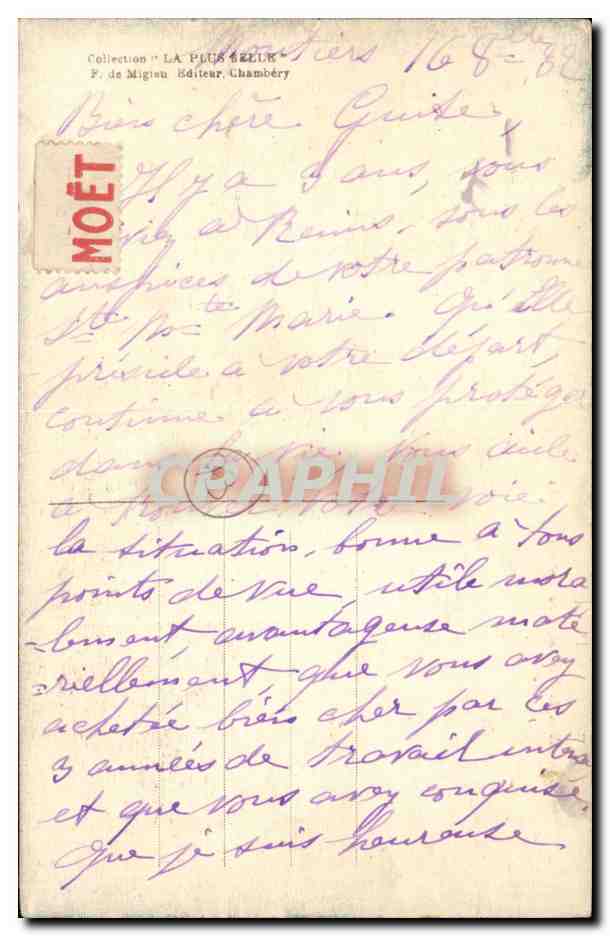 Collection "LA PLUS BELLE"
F. de Miglau Editeur, Chambéry
Moutiers 16 8
Bien chère
MOËT
Il y a 3 ans, vous
à Reims, sous les
auspices de votre patronne
Ste Marie. Qu'Elle
préside à votre départ,
continue à vous protéger
dans la vie, vous aide
à votre voie
CPAPHIL
la situation, bonne à tous
points de vue, utile mora
-lement, avantageuse maté
-riellement, que vous avez
achetée bien cher par ces
3 années de travail intense
et que vous avez conquise.
Que je suis heureuse